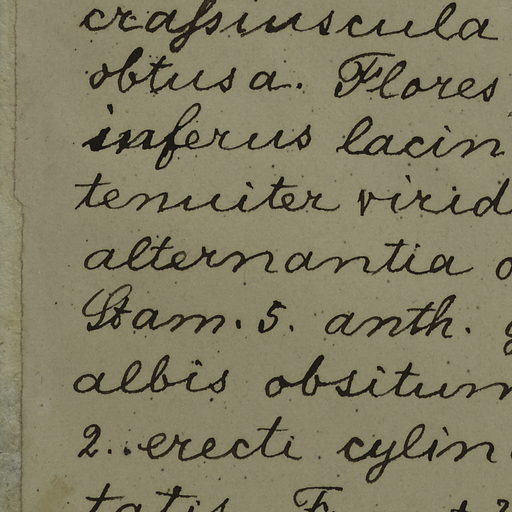 craſsiuscula
obtusa. Flores
inferus lacin
tenuiter virid
alternantia
Stam. 5. anth.
albis obsitum
2..erecti cylin
tatis